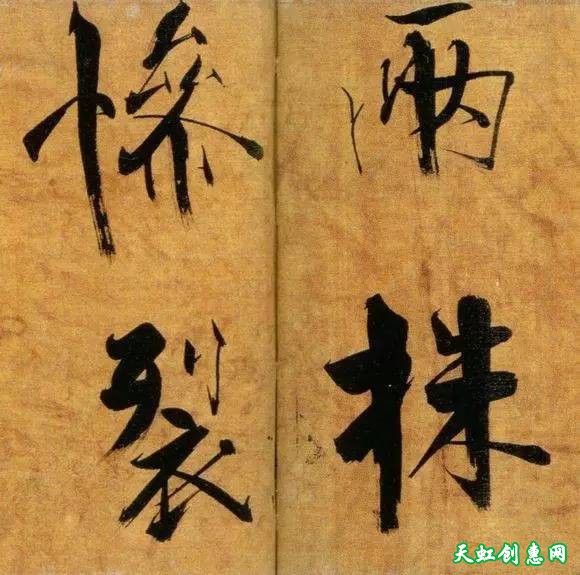 兩株
慘裂
天虹创惠网